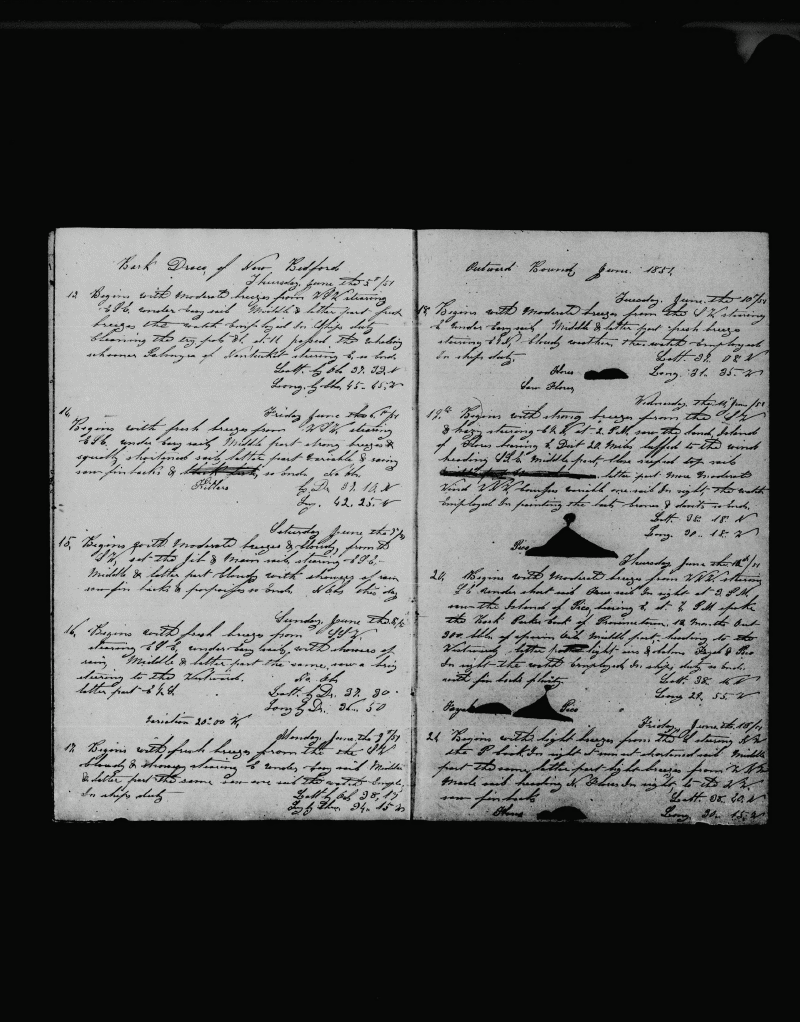 Bark Draco of New Bedford
Thursday June the 5th/51
13. Begins with Moderate breezes from WSW steering
ESE under easy sail Middle & latter part fresh
breezes the watch Employed In Ships duty
cleaning the try pots &c at 11 passed the whaling
schooner of Nantucket steering E so ends
Latt by Obs 39. 33. N
Long by Chr 45. 45. W
14. Friday June the 6th/51
Begins with fresh breezes from WSW steering
ESE under easy sail Middle part strong breezes &
squally shortened sail, latter part variable & rainy
saw finbacks & so ends No Obs
Killers
by Dr 39. 10. N
Long. 42. 25. W
Saturday June the 7th/51
15. Begins with Moderate breezes & cloudy from the
SW set the jib & Main sail, steering ESE
Middle & latter part cloudy with showers of rain
saw fin backs & porpoises so ends No Obs this day
Sunday June the 8th/51
16. Begins with fresh breezes from SSW
steering ESE under easy sail, with showers of
rain Middle & latter part the same, saw a brig
steering to the Westward. No Obs
latter part E by S Latt by Dr. 39. 30
Long by Dr. 36. 50
Variation 25.00 W
Monday June the 9th/51
17. Begins with fresh breezes from the SW
cloudy & steering E under easy sail Middle
& latter part the same saw one sail the watch Employed
In ships duty Latt by Obs 38. 17
Long by Chr 34. 15 W
Outward Bound June 1851
Tuesday June the 10th/51
18. Begins with Moderate breezes from the SW steering
E under easy sail Middle & latter part fresh breeze
steering cloudy weather the watch Employed
In ships duty. Latt 39. 08. N
Flores Long. 31. 35 W
Saw Flores
Wednesday the 11 June/51
19th Begins with strong breezes from the SW
& hazy steering at 2 P.M. saw the land, Island
of Flores bearing E Dist 20 Miles luffed to the wind
heading Middle part, close reefed top sails
latter part More Moderate
Wind WNW, one sail In sight, the watch
Employed In painting the boats so ends.
Latt. 38. 18. N
Long 30. 18. W
Pico
Thursday June the 12th/51
20. Begins with Moderate breeze from WNW steering
under short sail one sail In sight at 2 P.M.
saw the Island of Pico, bearing E at 7 P.M. spoke
the Bark Parker Cook of Provincetown, 12 Months Out
300 bbls of sperm Oil Middle part heading to the
Westward, latter part light airs & calms Fayal & Pico
In sight the watch Employed In ships duty so ends
with fin backs plenty Latt. 38. N
Long 29. 55. W
Fayal Pico
Friday June the 13th/51
21. Begins with light breezes from the E steering
the P boat In sight shortened sail Middle
part the same, latter part light breezes from
Made sail heading N Flores In sight, to the NW
saw finbacks Latt. 38. N
Flores Long. 30. 15. W